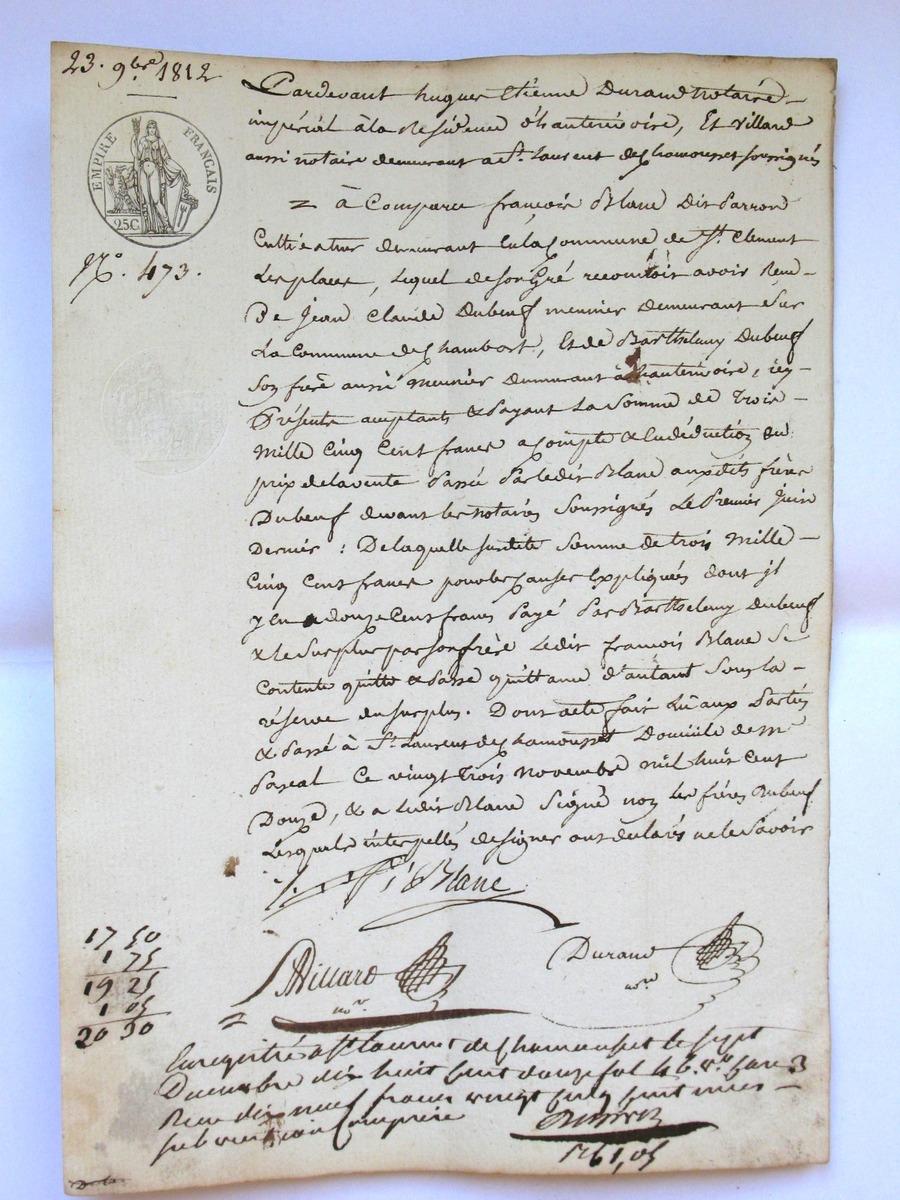 23. 9bre 1812
EMPIRE FRANÇAIS
25C
N.o 473.
Pardevant hugues Etienne Durand notaire
impérial à la Résidence d'hauterivoire, Et Villard
aussi notaire demeurant a St. Laurent de Chamousset soussignés
à Comparu françois Blanc dit Parron
Cultivateur demeurant En la Commune de St. Clement
Les places, Lequel de son Gré reconnoit avoir Reçu
De Jean Claude Dubeuf meunier demeurant Sur
La Commune de Chambost, Et de Barthelemy Dubeuf
Son frère aussi Meunier demeurant à hauterivoire, icy
Présents acceptants & Payant La Somme de Trois
Mille Cinq Cent francs a compte & En déduction du
prix de la vente Passée Par ledit Blanc auxdits frères
Dubeuf devant les notaires Soussignés Le Premier Juin
Dernier : De laquelle susdite Somme de trois Mille
Cinq Cent francs pour les Causes Expliquées dont il
y En a douze Cent francs Payé Par Barthelemy Dubeuf
& le Surplus par son frère Ledit françois Blanc Se
Contente quitte & Passe quittance d'autant Sous la
réserve du surplus. Dont acte fait Lu aux Parties
& Passé à St. Laurent de Chamousset Domicile de me
Pascal Ce vingt Trois Novembre mil huit Cent
Douze, & a Ledit Blanc Signé non Les frères Dubeuf
Lesquels interpellés de signer ont declarés ne le Savoir
Blanc
Villard
nore
Durand
nore
17 50
1 75
19 25
1 05
20 30
Enregistré a St Laurent de Chamousset le sept
Decembre dix huit Cent douze fol 46. vo. Case 3
Recu dix neuf francs vingt Cinq Centimes
subvention Comprise